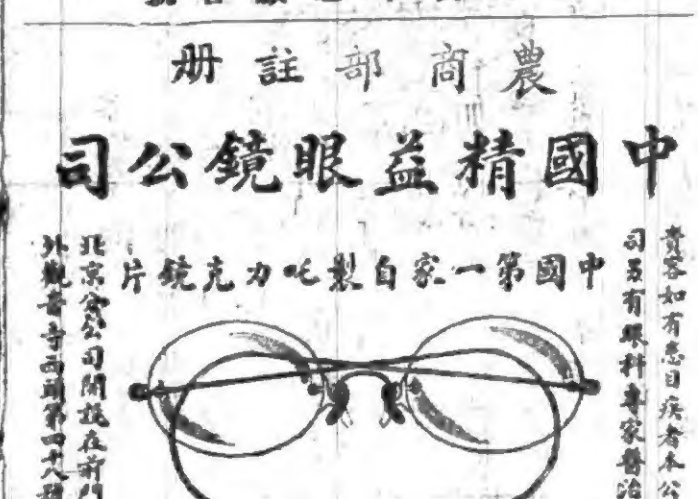 農商部註册
中國精益眼鏡公司
中國第一家自製吒力克鏡片
貴客如有患目疾者本公
司另有眼科專家醫治
北京分公司開設在前門
外觀音寺西頭第四十八號